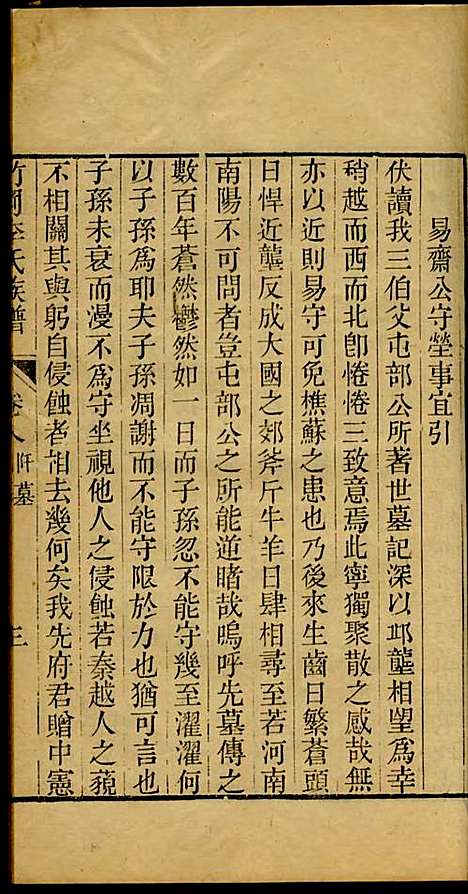 易齋公守塋事宜引
伏讀我三伯父屯部公所著世墓記深以邱壟相望爲幸
稍越而西而北卽惓惓三致意焉此寧獨聚散之感哉無
亦以近則易守可免樵蘇之患也乃後來生齒日繁蒼頭
日悍近壟反成大國之郊斧斤牛羊日肆相尋至若河南
南陽不可問者豈屯部公之所能逆睹哉嗚呼先墓傳之
數百年蒼然鬱然如一日而子孫忽不能守幾至濯濯何
以子孫爲耶夫子孫凋謝而不能守限於力也猶可言也
子孫未衰而漫不爲守坐視他人之侵蝕若秦越人之藐
不相關其與躬自侵蝕者相去幾何矣我先府君贈中憲
竹岡李氏族譜 卷八 阡墓 三